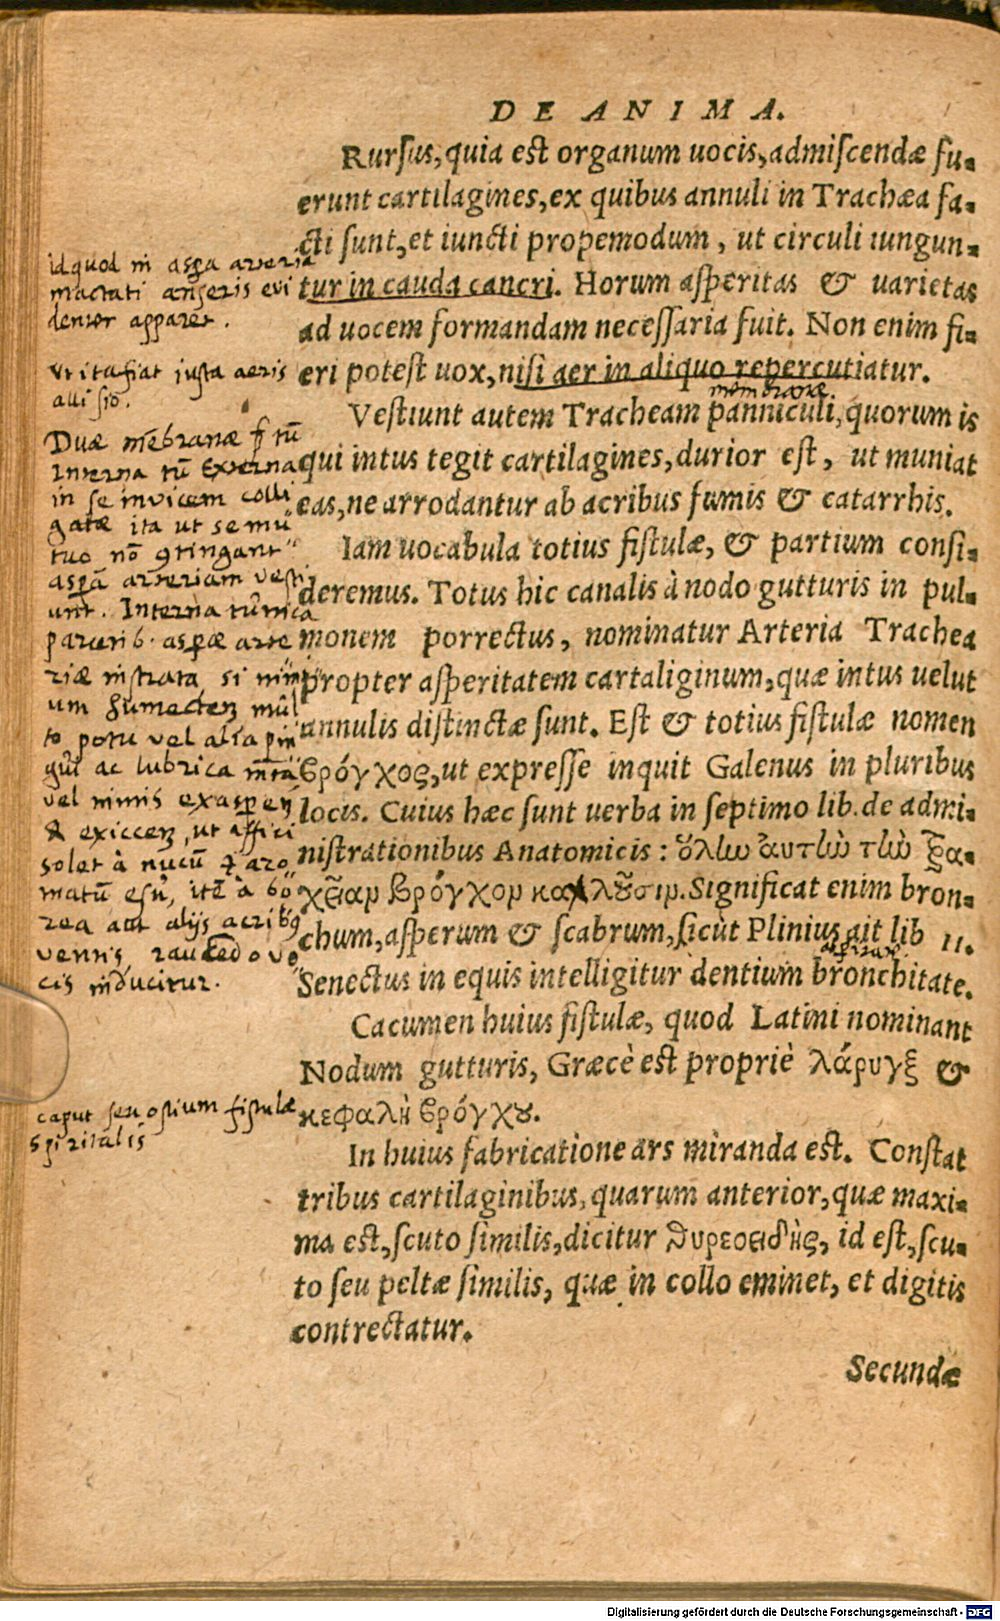 DE ANIMA.
Rursus, quia est organum uocis, admiscendæ fu-
erunt cartilagines, ex quibus annuli in Trachæa fa-
cti sunt, et iuncti propemodum, ut circuli iungun-
tur in cauda cancri. Horum asperitas & uarietas
ad uocem formandam necessaria fuit. Non enim fi-
eri potest uox, nisi aer in aliquo repercutiatur.
membranæ
Vestiunt autem Tracheam panniculi, quorum is
qui intus tegit cartilagines, durior est, ut muniat
eas, ne arrodantur ab acribus fumis & catarrhis.
Iam uocabula totius fistulæ, & partium consi-
deremus. Totus hic canalis à nodo gutturis in pul-
monem porrectus, nominatur Arteria Trachea
propter asperitatem cartaliginum, quæ intus uelut
annulis distinctæ sunt. Est & totius fistulæ nomen
βρόγχος, ut expresse inquit Galenus in pluribus
locis. Cuius hæc sunt uerba in septimo lib. de admi-
nistrationibus Anatomicis: ὅλην αὐτὴν τὴν τρα-
χεῖαν βρόγχον καλοῦσιν. Significat enim bron-
chum, asperum & scabrum, sicùt Plinius ait lib 11.
Senectus in equis intelligitur dentium bronchitate.
Cacumen huius fistulæ, quod Latini nominant
Nodum gutturis, Græcè est propriè λάρυγξ &
κεφαλὴ βρόγχου.
In huius fabricatione ars miranda est. Constat
tribus cartilaginibus, quarum anterior, quæ maxi-
ma est, scuto similis, dicitur θυρεοειδὴς, id est, scu-
to seu peltæ similis, quæ in collo eminet, et digitis
contrectatur.
Secundæ
id quod in aspa arteria
mactati anseris evi
denter apparet.
Vt ita fiat iusta aeris
allisiō.
Duæ mēbranæ tū
Interna tū Externa
in se invicem colli
gatæ ita ut se mu
tuo nō ꝯtingant
aspā arteriam vesti
unt. Interna tunica
asperæ arte
riæ instrata, si nimi
um humectetꝛ mul
to potu vel alia pin
gui ac lubrica
vel nimis exasperetꝛ
& exiccetꝛ, ut affici
solet à nucū aro
matū esu, itē à bo
rea aut alijs acribꝰ
ventis, raucedo vo
cis inducitur.
caput seu ostium fistulæ
spiritalis
Digitalisierung gefördert durch die Deutsche Forschungsgemeinschaft - DFG